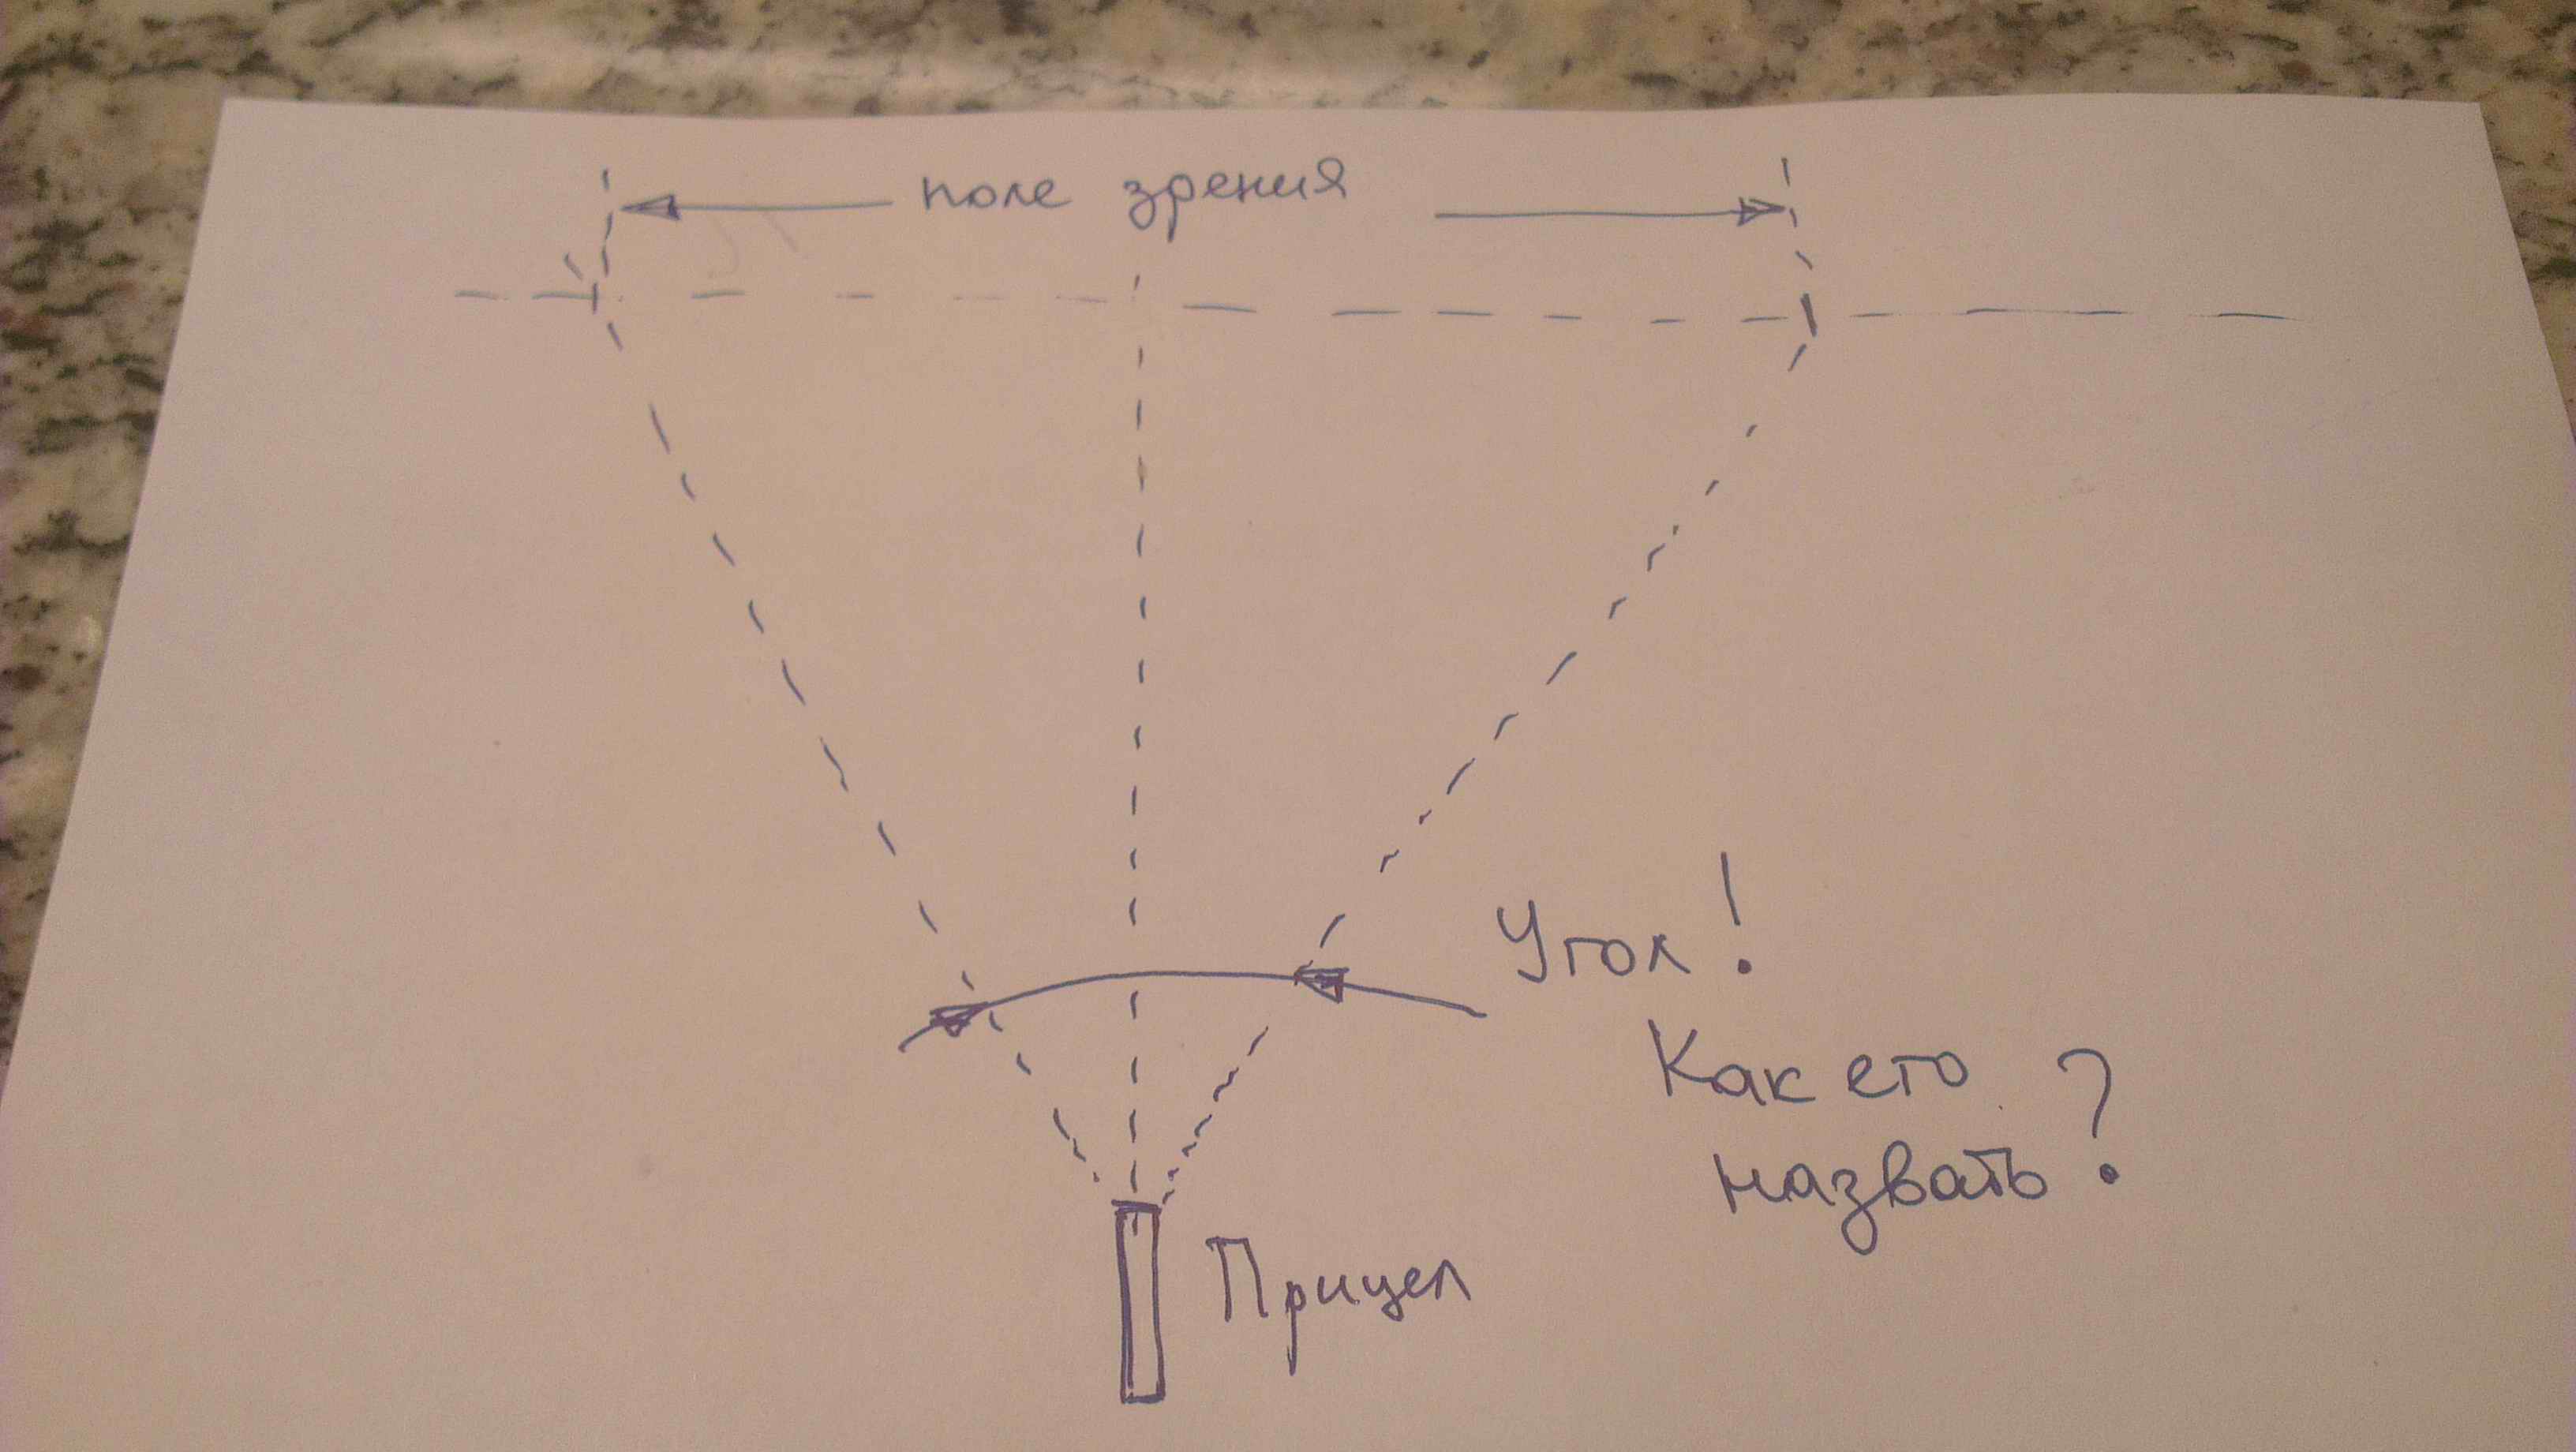 поле зрения
Угол!
Как его
назвать?
Прицел